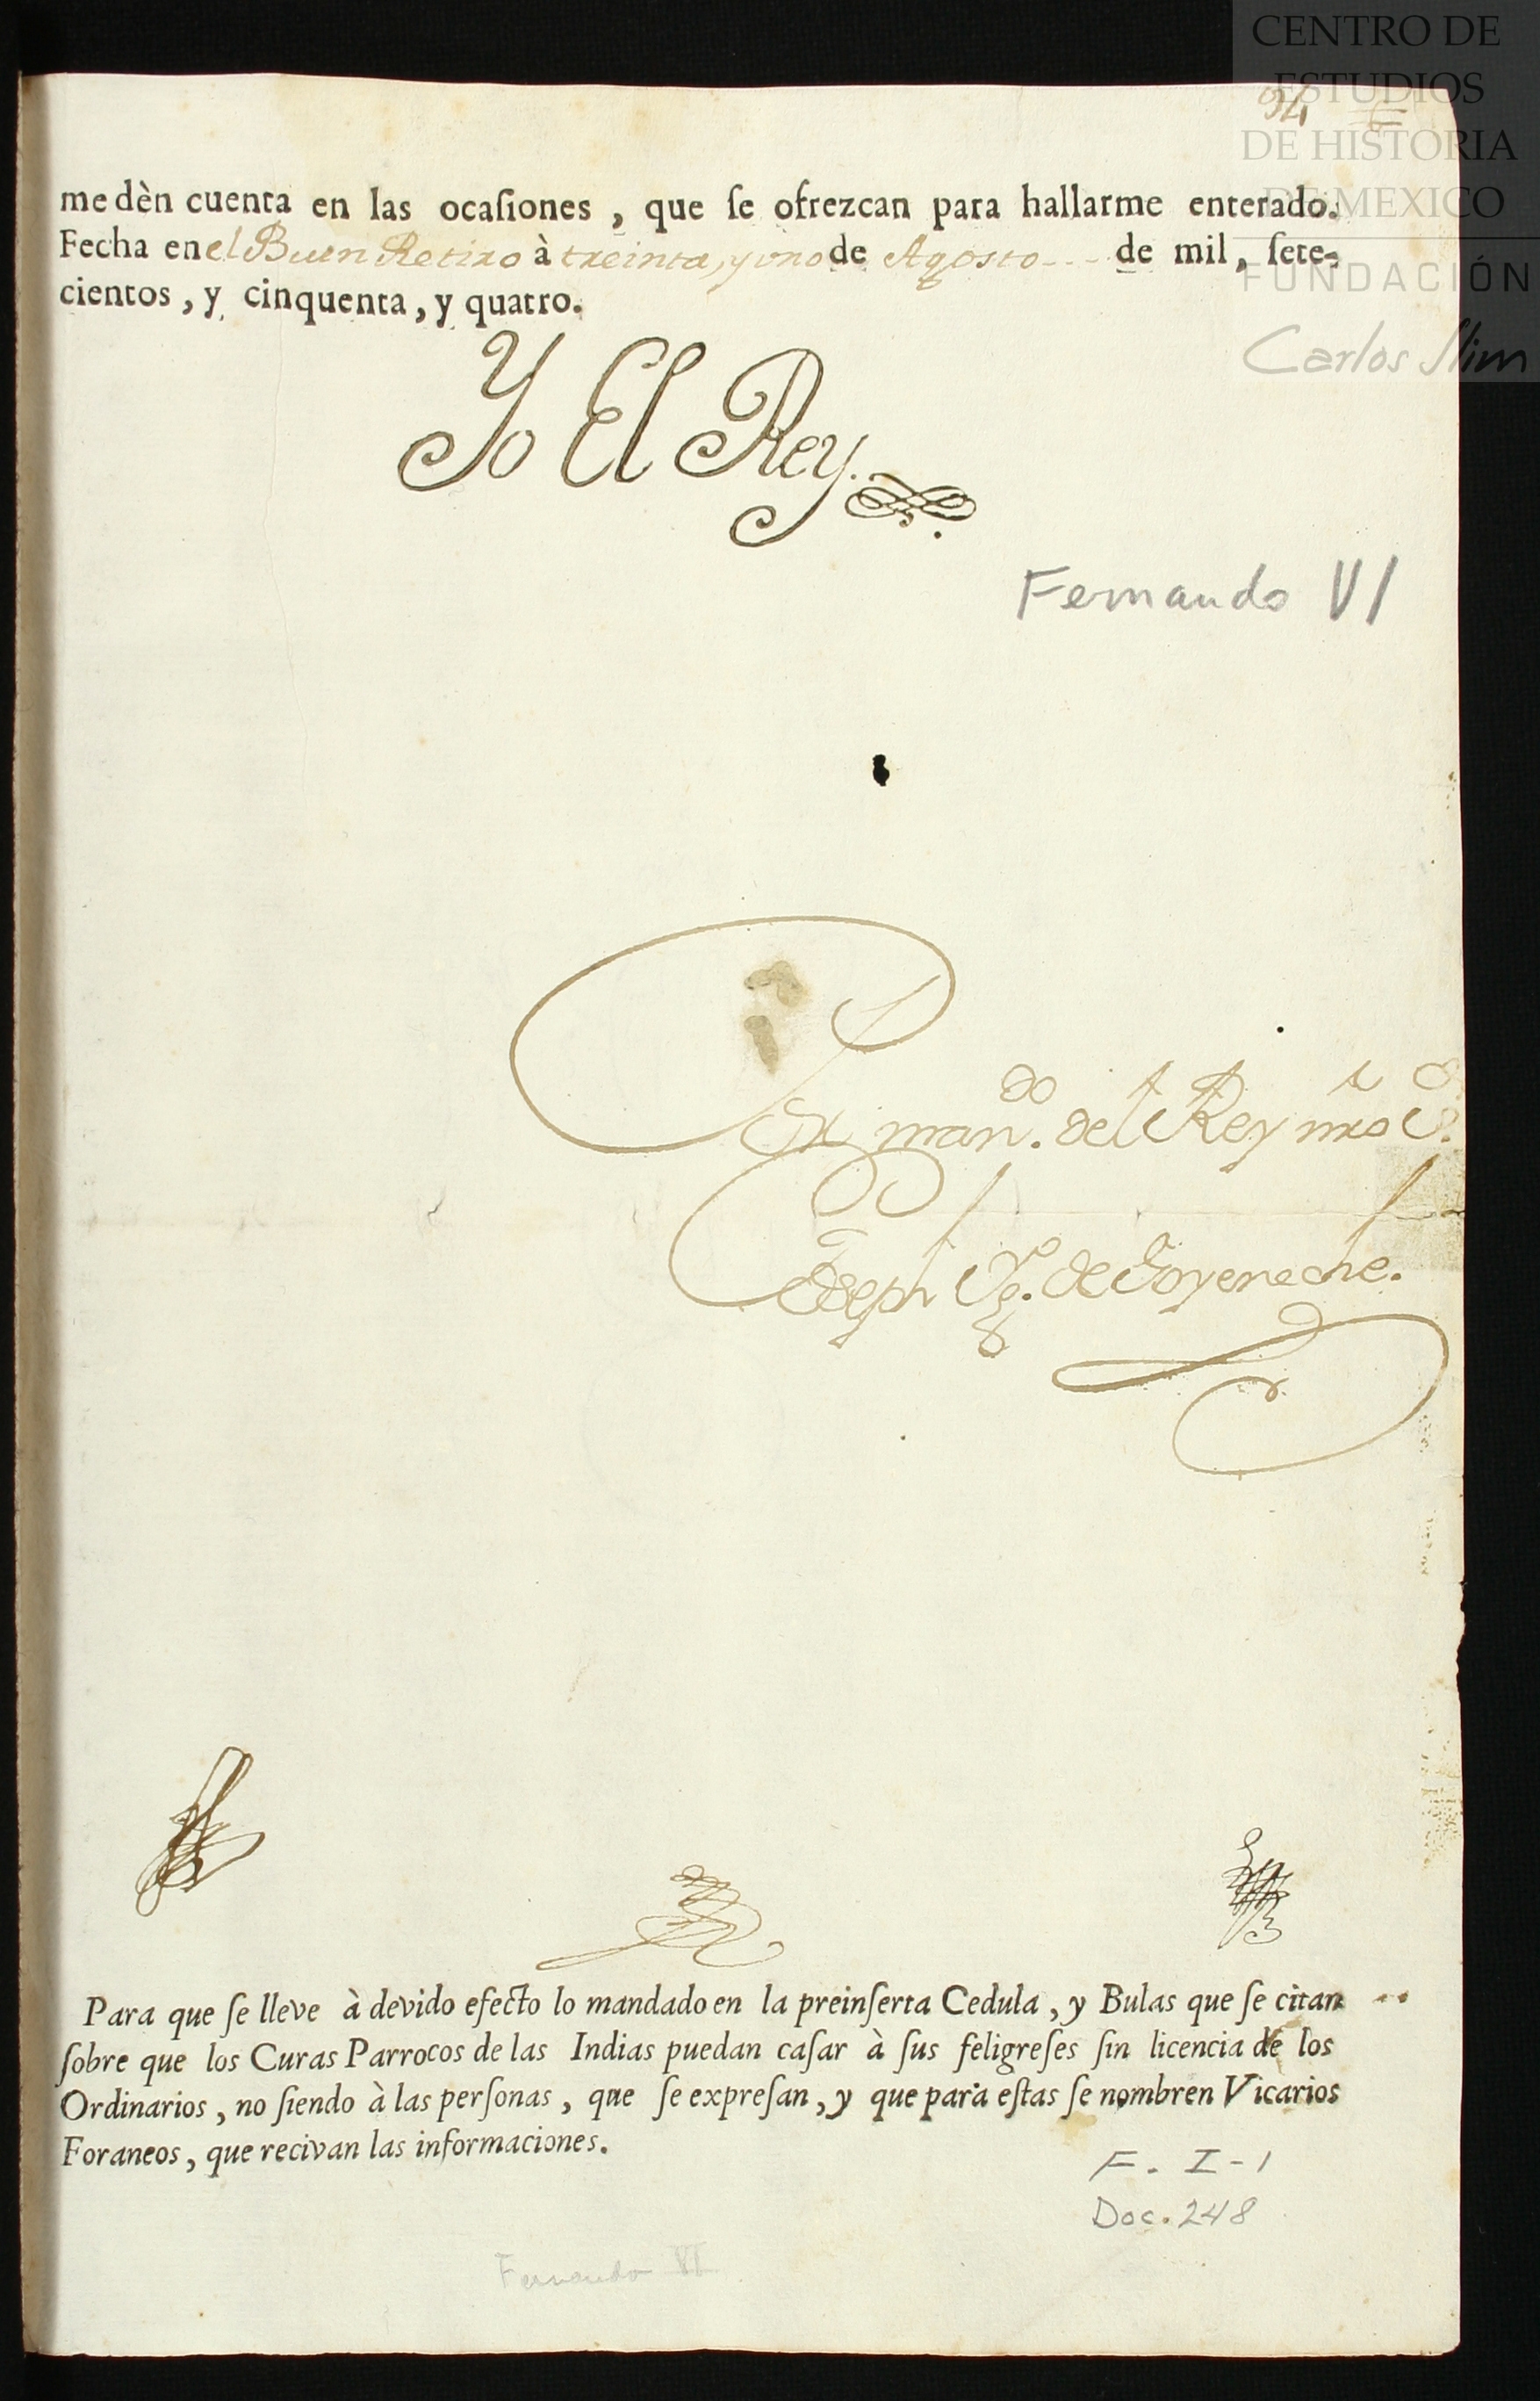 CENTRO DE
ESTUDIOS
DE HISTORIA
DE MEXICO
FUNDACIÓN
Carlos Slim
94
me dèn cuenta en las ocaſiones , que ſe ofrezcan para hallarme enterado.
Fecha en el Buen Retiro à treinta, y uno de Agosto de mil, ſete-
cientos , y cinquenta , y quatro.
Yo El Rey.
Fernando VI
Por man.do del Rey nro S.r
Joseph Ig.o de Goyeneche.
Para que ſe lleve à devido efecto lo mandado en la preinſerta Cedula , y Bulas que ſe citan
ſobre que los Curas Parrocos de las Indias puedan caſar à ſus feligreſes ſin licencia de los
Ordinarios , no ſiendo à las perſonas , que ſe expreſan , y que para eſtas ſe nombren Vicarios
Foraneos , que recivan las informaciones.
F. I-1
Doc. 248
Fernando VI